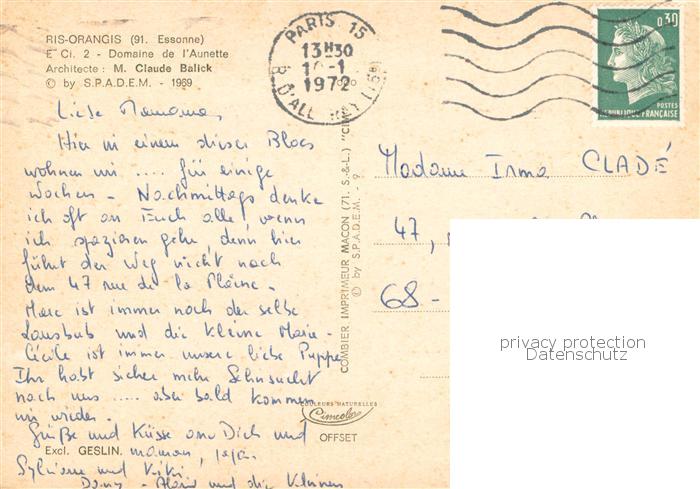 RIS-ORANGIS (91. Essonne)
E Ci. 2 - Domaine de l'Aunette
Architecte : M. Claude Balick
© by S.P.A.D.E.M. - 1969
PARIS 15
13H30
1972
0,30
POSTES
REPUBLIQUE FRANÇAISE
Liebe Mamama,
Hier in einem dieser Blocs
wohnen wir .... für einige
Wochen - Nachmittags denke
ich oft an Euch alle, wenn
ich spazieren gehe, denn hier
führt der Weg nicht nach
dem 47 rue de la Plaine -
Marc ist immer noch der selbe
Lausbub und die kleine Marie-
Cécile ist immer unsere liebe Puppe
Ihr habt sicher mehr Sehnsucht
nach uns .... aber bald kommen
wir wieder.
Grüße und Küsse an Dich und
maman, papa
Sylviane und Kiki
Dany - Alain und die Kleinen
Excl. GESLIN.
COMBIER IMPRIMEUR MACON (71. S.-&-L.) "CIM"
© by S.P.A.D.E.M. - 9
COULEURS NATURELLES
Cimcolor
OFFSET
Madame Irma CLADÉ
47,
68 -
privacy protection
Datenschutz